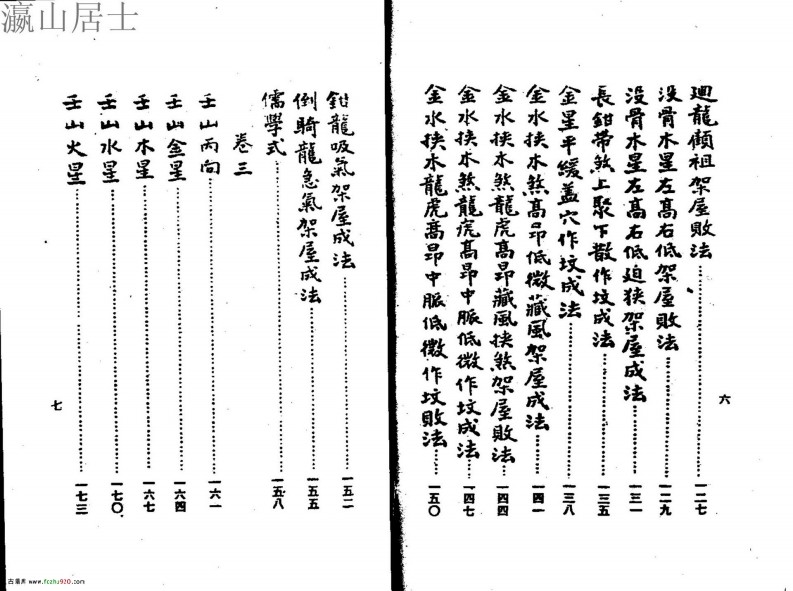 瀛山居士
廻龍顧祖架屋敗法……一二七
没骨木星左高右低架屋敗法……一二九
没骨木星左高右低迫狹架屋成法……一三一
長鉗帶煞上聚下散作坟成法……一三五
金星平緩蓋穴作坟成法……一三八
金水挟木煞高昂低微藏風架屋成法……一四一
金水挟木煞龍虎高昂藏風挟煞架屋敗法……一四四
金水挟木煞龍虎高昂中脈低微作坟成法……一四七
金水挟木龍虎高昂中脈低微作坟敗法……一五〇
六
鉗龍吸氣架屋成法……一五二
倒騎龍急氣架屋成法……一五五
儒學式……一五八
卷三
壬山丙向……一六一
壬山金星……一六四
壬山木星……一六七
壬山水星……一七〇
壬山火星……一七三
七
www.fczhu920.com